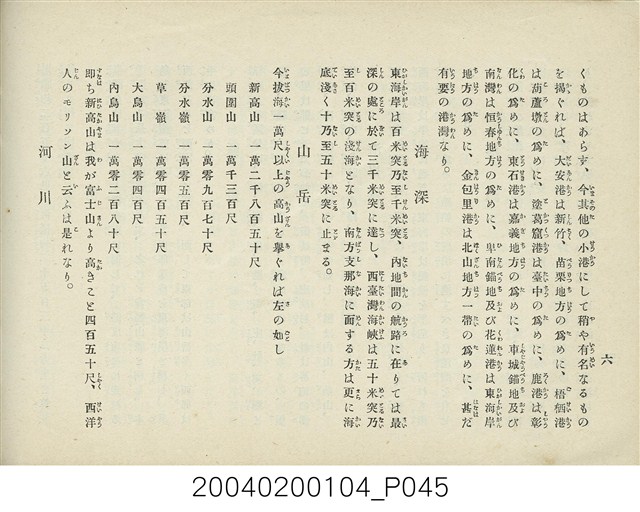 六
くものはあらず、今其他の小港にして稍や有名なるもの
を揭ぐれば、大安港は新竹、苗栗地方の爲めに、梧栖港
は葫蘆墩の爲めに、塗葛窟港は臺中の爲めに、鹿港は彰
化の爲めに、東石港は嘉義地方の爲めに、車城錨地及び
南灣は恒春地方の爲めに、卑南錨地及び花蓮港は東海岸
地方の爲めに、金包里港は北山地方一帶の爲めに、甚だ
有要の港灣なり。
海深
東海岸は百米突乃至千米突、內地間の航路に在りては最
深の處に於て三千米突に達し、西臺灣海峽は五十米突乃
至百米突の淺海となり、南方支那海に面する方は更に海
底淺く十乃至五十米突に止まる。
山岳
今拔海一萬尺以上の高山を擧ぐれば左の如し
新高山 一萬二千八百五十尺
頭圍山 一萬千三百尺
分水山 一萬零九百七十尺
分水嶺 一萬零五百尺
草嶺 一萬零四百五十尺
大鳥山 一萬零四百尺
內鳥山 一萬零二百八十尺
卽ち新高山は我が富士山より高きこと四百五十尺、西洋
人のモリソン山と云ふは是れなり。
河川
20040200104_P045